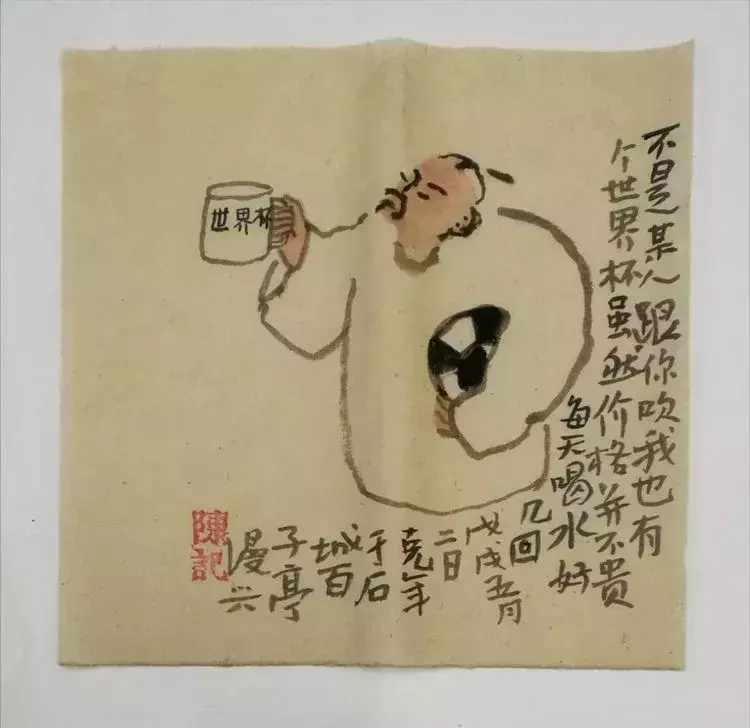 不是某人跟你吹我也有
个世界杯虽然价格并不贵
每天喝水好
几回
戊戌五月
二日
克年
于石
城百
子亭
漫
兴
陳記
世界杯